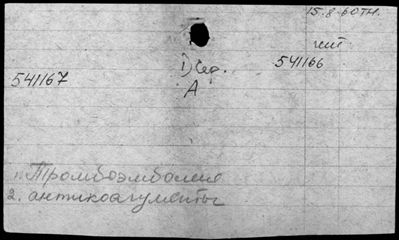 15.8.60тн.
541166
1) Сер.
541167
А
1. Тромбоэмболия
2. антикоагулянты